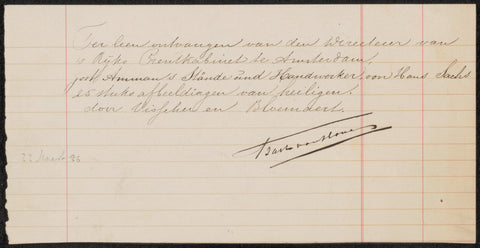 Ter leen ontvangen van den Directeur van
's Rijks Prentkabinet te Amsterdam,
Jost Amman's Stände und Handwerker, von Hans Sachs
25 stuks afbeeldingen van heiligen,
door Visscher en Bloemaert.
Bart van Hove
22 86